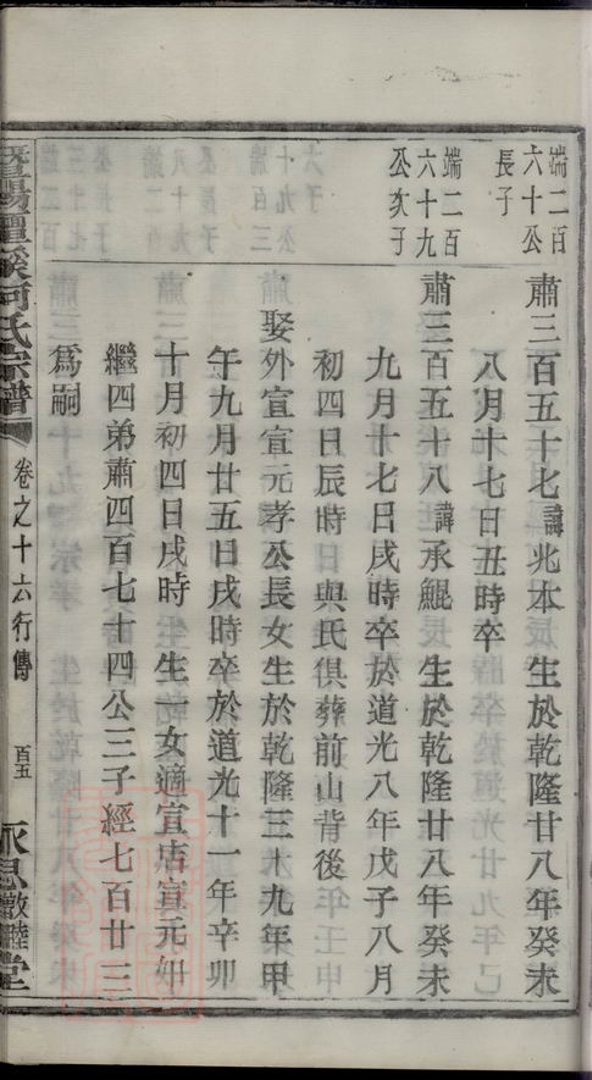 端二百
六十公
長子
肅三百五十七諱兆本　生於乾隆廿八年癸未
八月十七日丑時卒
端二百
六十九
公亥子
肅三百五十八諱承鯤　生於乾隆廿八年癸未
九月十七日戌時卒於道光八年戊子八月
初四日辰時　與氏俱葬前山背後
娶外宣宣元孝公長女生於乾隆三十九年甲
午九月廿五日戌時卒於道光十一年辛卯
十月初四日戌時　生一女適宣店宣元
繼四弟肅四百七十四公三子經七百廿三
爲嗣
暨陽 溪何氏宗譜
卷之十六行傳
百五
永思敦睦堂